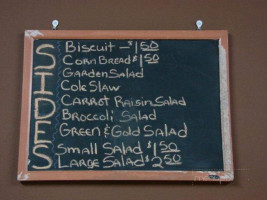 SIDES
Biscuit - $1.50
Corn Bread $1.50
Garden Salad
Cole Slaw
Carrot Raisin Salad
Broccoli Salad
Green & Gold Salad
Small Salad $1.50
Large Salad $2.50